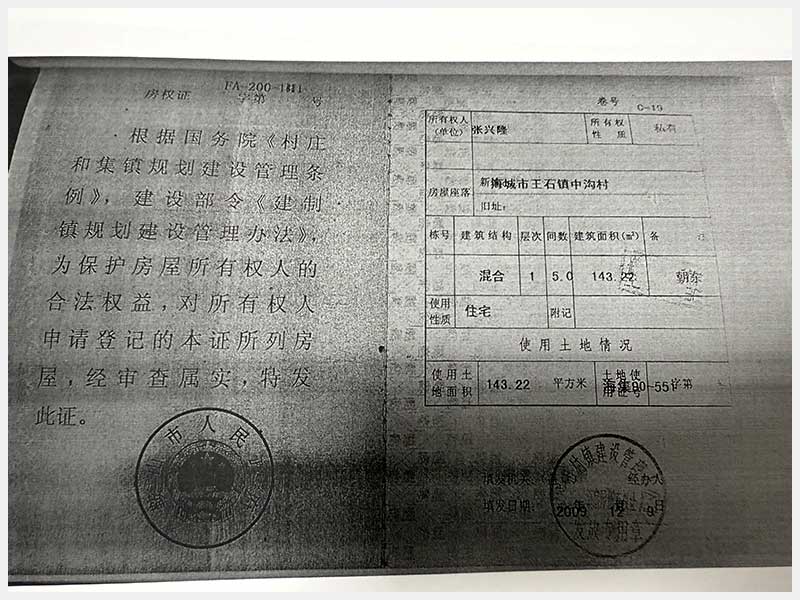 房权证 字第 FA-200-1111 号
根据国务院《村庄
和集镇规划建设管理条
例》，建设部令《建制
镇规划建设管理办法》，
为保护房屋所有权人的
合法权益，对所有权人
申请登记的本证所列房
屋，经审查属实，特发
此证。
市人民
卷号 C-19
所有权人(单位) 张兴隆 所有权性质 私有
房屋座落 海城市王石镇中沟村
旧址:
栋号 建筑结构 层次 间数 建筑面积(㎡) 备注
混合 1 5.0 143.22 朝东
使用性质 住宅 附记
使用土地情况
使用土地面积 143.22 平方米 土地使用证号 海集90-551 字第
填发机关 经办人
填发日期: 2009 年 12 月 9 日
镇建设管